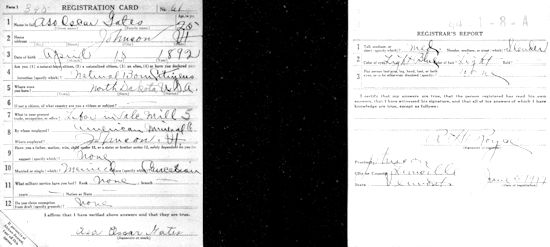 Form 1
REGISTRATION CARD No. 61
1 Name in full Asa Oscar Gates Age, in yrs. 25
2 Home address Johnson Vt
3 Date of birth April 13 1892
4 Are you (1) a natural-born citizen, (2) a naturalized citizen, (3) an alien, (4) or have you declared your intention (specify which)? Natural Born Citizen
5 Where were you born? North Dakota U.S.A.
6 If not a citizen, of what country are you a citizen or subject?
7 What is your present trade, occupation, or office? Labor in Talc Mill 5
8 By whom employed? American Mineral Co.
Where employed? Johnson Vt
9 Have you a father, mother, wife, child under 12, or a sister or brother under 12, solely dependent on you for support (specify which)? None
10 Married or single (which)? Married Race (specify which)? Caucasian
11 What military service have you had? Rank None branch
years Nation or State
12 Do you claim exemption from draft (specify grounds)? None
I affirm that I have verified above answers and that they are true.
Asa Oscar Gates
(Signature or mark)
REGISTRAR'S REPORT
1 Tall, medium, or short (specify which)? Med Slender, medium, or stout (which)? Slender
2 Color of eyes? Light Blue Color of hair? Light
3 Has person lost arm, leg, hand, foot, or both eyes, or is he otherwise disabled (specify)? None
I certify that my answers are true, that the person registered has read his own answers, that I have witnessed his signature, and that all of his answers of which I have knowledge are true, except as follows:
(Signature of registrar)
Precinct Johnson
City or County Lamoille
State Vermont June 5 1917